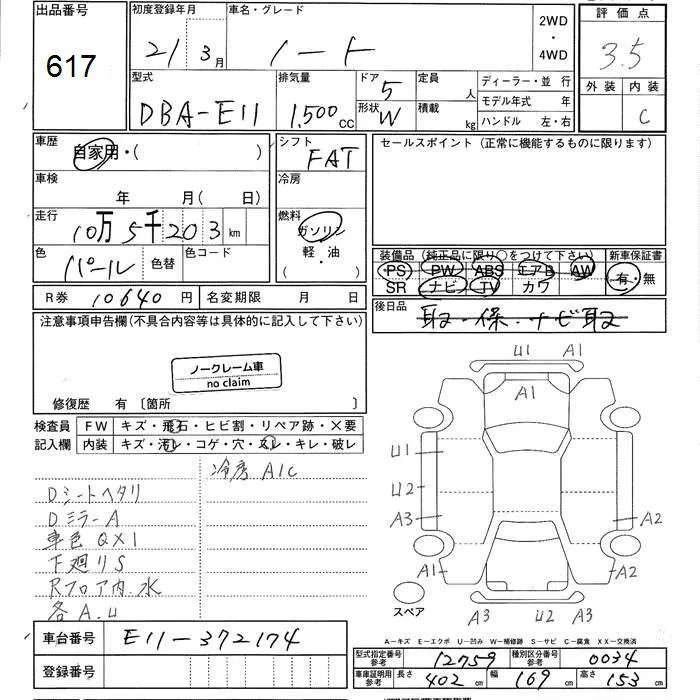 出品番号 617
初度登録年月 21 3月
車名・グレード ノート
2WD・4WD
評価点 3.5
外装 内装 C
型式 DBA-E11
排気量 1,500cc
ドア 5
形状 W
定員 人
積載 kg
ディーラー・並行
モデル年式 年
ハンドル 左・右
車歴 自家用・( )
シフト FAT
セールスポイント (正常に機能するものに限ります)
車検 年 月( 日)
冷房
走行 10万5千203km
燃料 ガソリン 軽・油
色 パール 色替 色コード
装備品 (純正品に限り○をつけて下さい) 新車保証書
PS PW ABS エアB AW 有・無
SR ナビ TV カワ
R券 10640円 名変期限 月 日
後日品 取・保・ナビ取
注意事項申告欄(不具合内容等は具体的に記入して下さい)
ノークレーム車
no claim
修復歴 有 〔箇所 〕
検査員記入欄 FW キズ・飛石・ヒビ割・リペア跡・X要
内装 キズ・汚レ・コゲ・穴・スレ・キレ・破レ
冷房 A/C
Dシートヘタリ
Dミラー A
車色 QX1
下廻りS
Rフロア内、水
各 A.U
U1 A1
A1
U1
U2
A3 A2
A1 A2
スペア
A3 U2 A3
A-キズ E-エクボ U-凹み W-補修跡 S-サビ C-腐食 XX-交換済
車台番号 E11-372174
登録番号
型式指定番号参考 12759 種別区分番号参考 0034
車庫証明用参考 長さ 402cm 幅 169cm 高さ 153cm